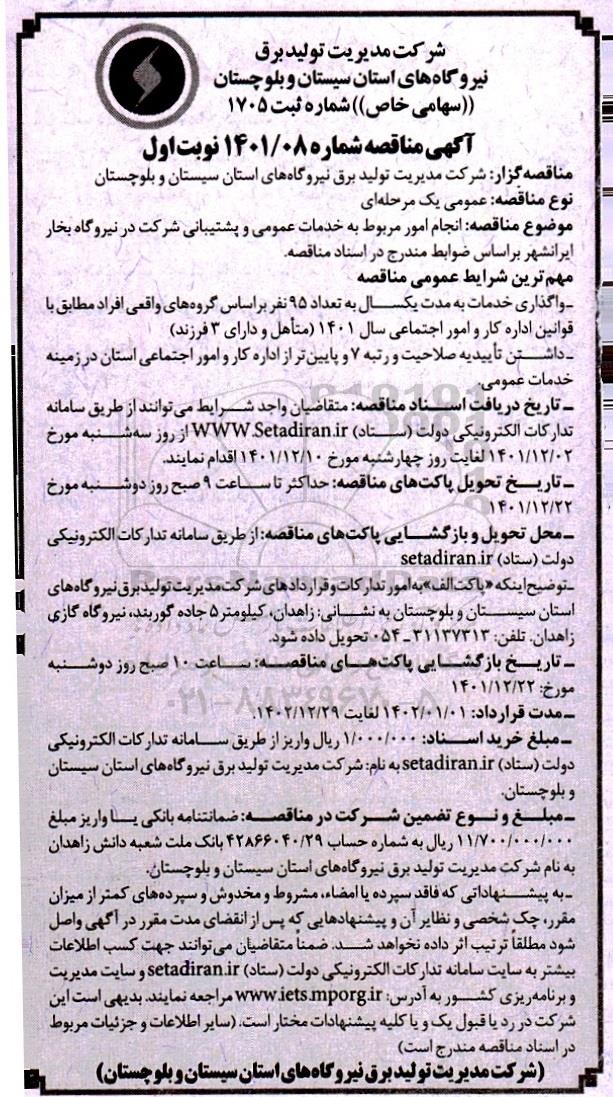 شرکت مدیریت تولید برق
نیروگاه‌های استان سیستان و بلوچستان
((سهامی خاص)) شماره ثبت ۱۷۰۵
آگهی مناقصه شماره ۱۴۰۱/۰۸ نوبت اول
مناقصه‌گزار: شرکت مدیریت تولید برق نیروگاه‌های استان سیستان و بلوچستان
نوع مناقصه: عمومی یک مرحله‌ای
موضوع مناقصه: انجام امور مربوط به خدمات عمومی و پشتیبانی شرکت در نیروگاه بخار
ایرانشهر براساس ضوابط مندرج در اسناد مناقصه.
مهم‌ترین شرایط عمومی مناقصه
ـ واگذاری خدمات به مدت یکسال به تعداد ۹۵ نفر براساس گروه‌های واقعی افراد مطابق با
قوانین اداره کار و امور اجتماعی سال ۱۴۰۱ (متأهل و دارای ۳ فرزند)
ـ داشتن تأییدیه صلاحیت و رتبه ۷ و پایین‌تر از اداره کار و امور اجتماعی استان در زمینه
خدمات عمومی.
ـ تاریخ دریافت اسناد مناقصه: متقاضیان واجد شرایط می‌توانند از طریق سامانه
تدارکات الکترونیکی دولت (ستاد) WWW.Setadiran.ir از روز سه‌شنبه مورخ
۱۴۰۱/۱۲/۰۲ لغایت روز چهارشنبه مورخ ۱۴۰۱/۱۲/۱۰ اقدام نمایند.
ـ تاریخ تحویل پاکت‌های مناقصه: حداکثر تا ساعت ۹ صبح روز دوشنبه مورخ
۱۴۰۱/۱۲/۲۲
ـ محل تحویل و بازگشایی پاکت‌های مناقصه: از طریق سامانه تدارکات الکترونیکی
دولت (ستاد) setadiran.ir
ـ توضیح اینکه «پاکت الف» به امور تدارکات و قراردادهای شرکت مدیریت تولید برق نیروگاه‌های
استان سیستان و بلوچستان به نشانی: زاهدان، کیلومتر ۵ جاده گوربند، نیروگاه گازی
زاهدان. تلفن: ۳۱۱۳۷۳۱۳ ـ ۰۵۴ تحویل داده شود.
ـ تاریخ بازگشایی پاکت‌های مناقصه: ساعت ۱۰ صبح روز دوشنبه
مورخ: ۱۴۰۱/۱۲/۲۲
ـ مدت قرارداد: ۱۴۰۲/۰۱/۰۱ لغایت ۱۴۰۲/۱۲/۲۹.
ـ مبلغ خرید اسناد: ۱/۰۰۰/۰۰۰ ریال واریز از طریق سامانه تدارکات الکترونیکی
دولت (ستاد) setadiran.ir به نام: شرکت مدیریت تولید برق نیروگاه‌های استان سیستان
و بلوچستان.
ـ مبلغ و نوع تضمین شرکت در مناقصه: ضمانتنامه بانکی یا واریز مبلغ
۱۱/۷۰۰/۰۰۰/۰۰۰ ریال به شماره حساب ۴۲۸۶۶۰۴۰/۲۹ بانک ملت شعبه دانش زاهدان
به نام شرکت مدیریت تولید برق نیروگاه‌های استان سیستان و بلوچستان.
ـ به پیشنهاداتی که فاقد سپرده یا امضاء، مشروط و مخدوش و سپرده‌های کمتر از میزان
مقرر، چک شخصی و نظایر آن و پیشنهادهایی که پس از انقضای مدت مقرر در آگهی واصل
شود مطلقاً ترتیب اثر داده نخواهد شد. ضمناً متقاضیان می‌توانند جهت کسب اطلاعات
بیشتر به سایت سامانه تدارکات الکترونیکی دولت (ستاد) setadiran.ir و سایت مدیریت
و برنامه‌ریزی کشور به آدرس: www.iets.mporg.ir مراجعه نمایند. بدیهی است این
شرکت در رد یا قبول یک و یا کلیه پیشنهادات مختار است. (سایر اطلاعات و جزئیات مربوط
در اسناد مناقصه مندرج است)
(شرکت مدیریت تولید برق نیروگاه‌های استان سیستان و بلوچستان)